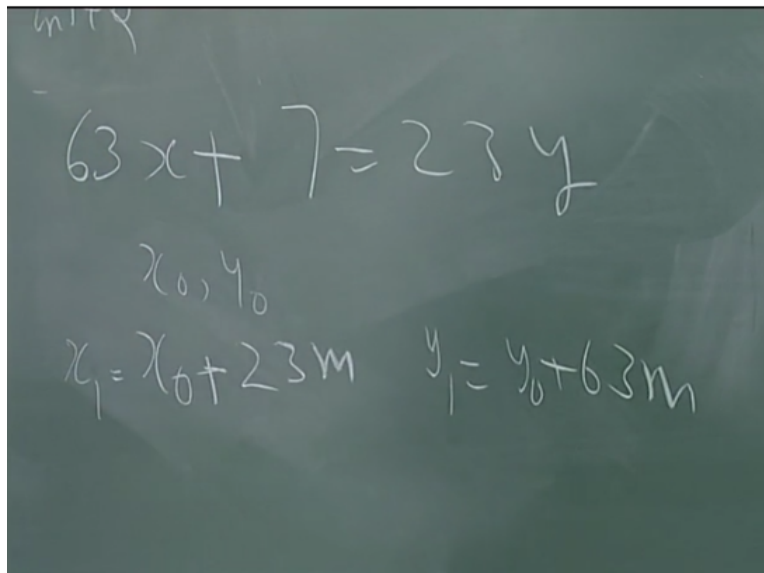 63x + 7 = 23y
x₀, y₀
x₁ = x₀ + 23m   y₁ = y₀ + 63m